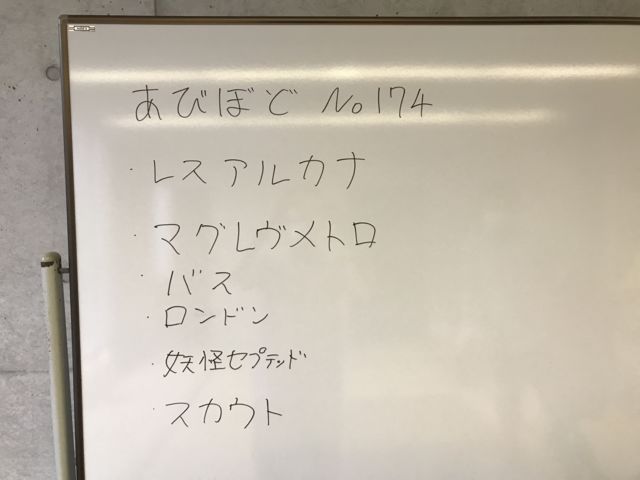 あびぼど No174
・レス アルカナ
・マグレヴメトロ
・バス
・ロンドン
・妖怪セプテッド
・スカウト